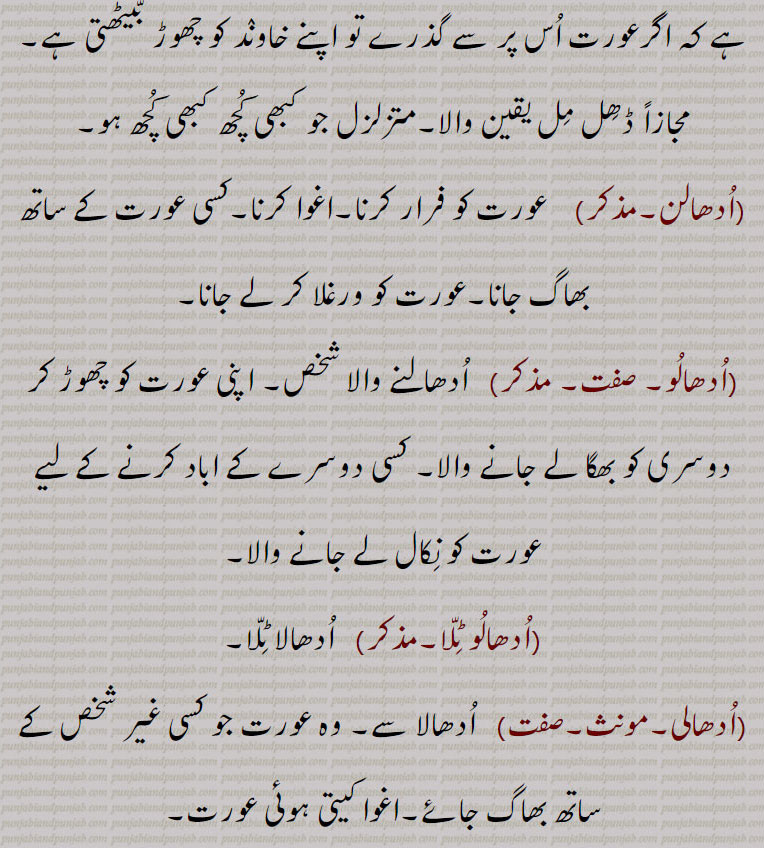 ہے کہ اگرعورت اُس پر سے گذرے تو اپنے خاونْد کو چھوڑ بَیٹھتی ہے۔
مجازاً ڈھِل مِل یقین والا۔متزلزل جو کبھی کُچھ کبھی کُچھ ہو۔
(اُدھالن۔مذکر) عورت کو فرار کرنا۔اغوا کرنا۔کسی عورت کے ساتھ
بھاگ جانا۔عورت کو ورغلا کر لے جانا۔
(اُدھالُو۔ صفت۔ مذکر) اُدھالنے والا شخص۔ اپنی عورت کو چھوڑ کر
دوسری کو بھگا لے جانے والا۔ کسی دوسرے کے اباد کرنے کے لیے
عورت کو نِکال لے جانے والا۔
(اُدھالُو ٹِلّا۔مذکر) اُدھالا ٹِلّا۔
(اُدھالی۔مونث۔صفت) اُدھالا سے۔ وہ عورت جو کسی غیر شخص کے
ساتھ بھاگ جائے۔اغوا کیتی ہوئی عورت۔